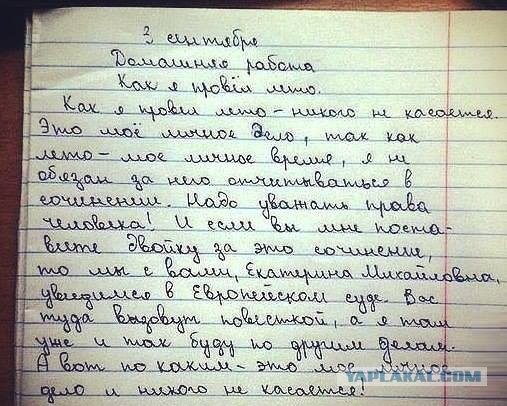 3 сентября
Домашняя работа
Как я провёл лето.
Как я провёл лето – никого не касается.
Это моё личное дело, так как
лето – мое личное время, я не
обязан за него отчитываться в
сочинении. Надо уважать права
человека! И если вы мне поста-
вите двойку за это сочинение,
то мы с вами, Екатерина Михайловна,
увидимся в Европейском суде. Вас
туда вызовут повесткой, а я там
уже и так буду по другим делам.
А вот по каким – это мое личное
дело и никого не касается!
YAPLAKAL.COM